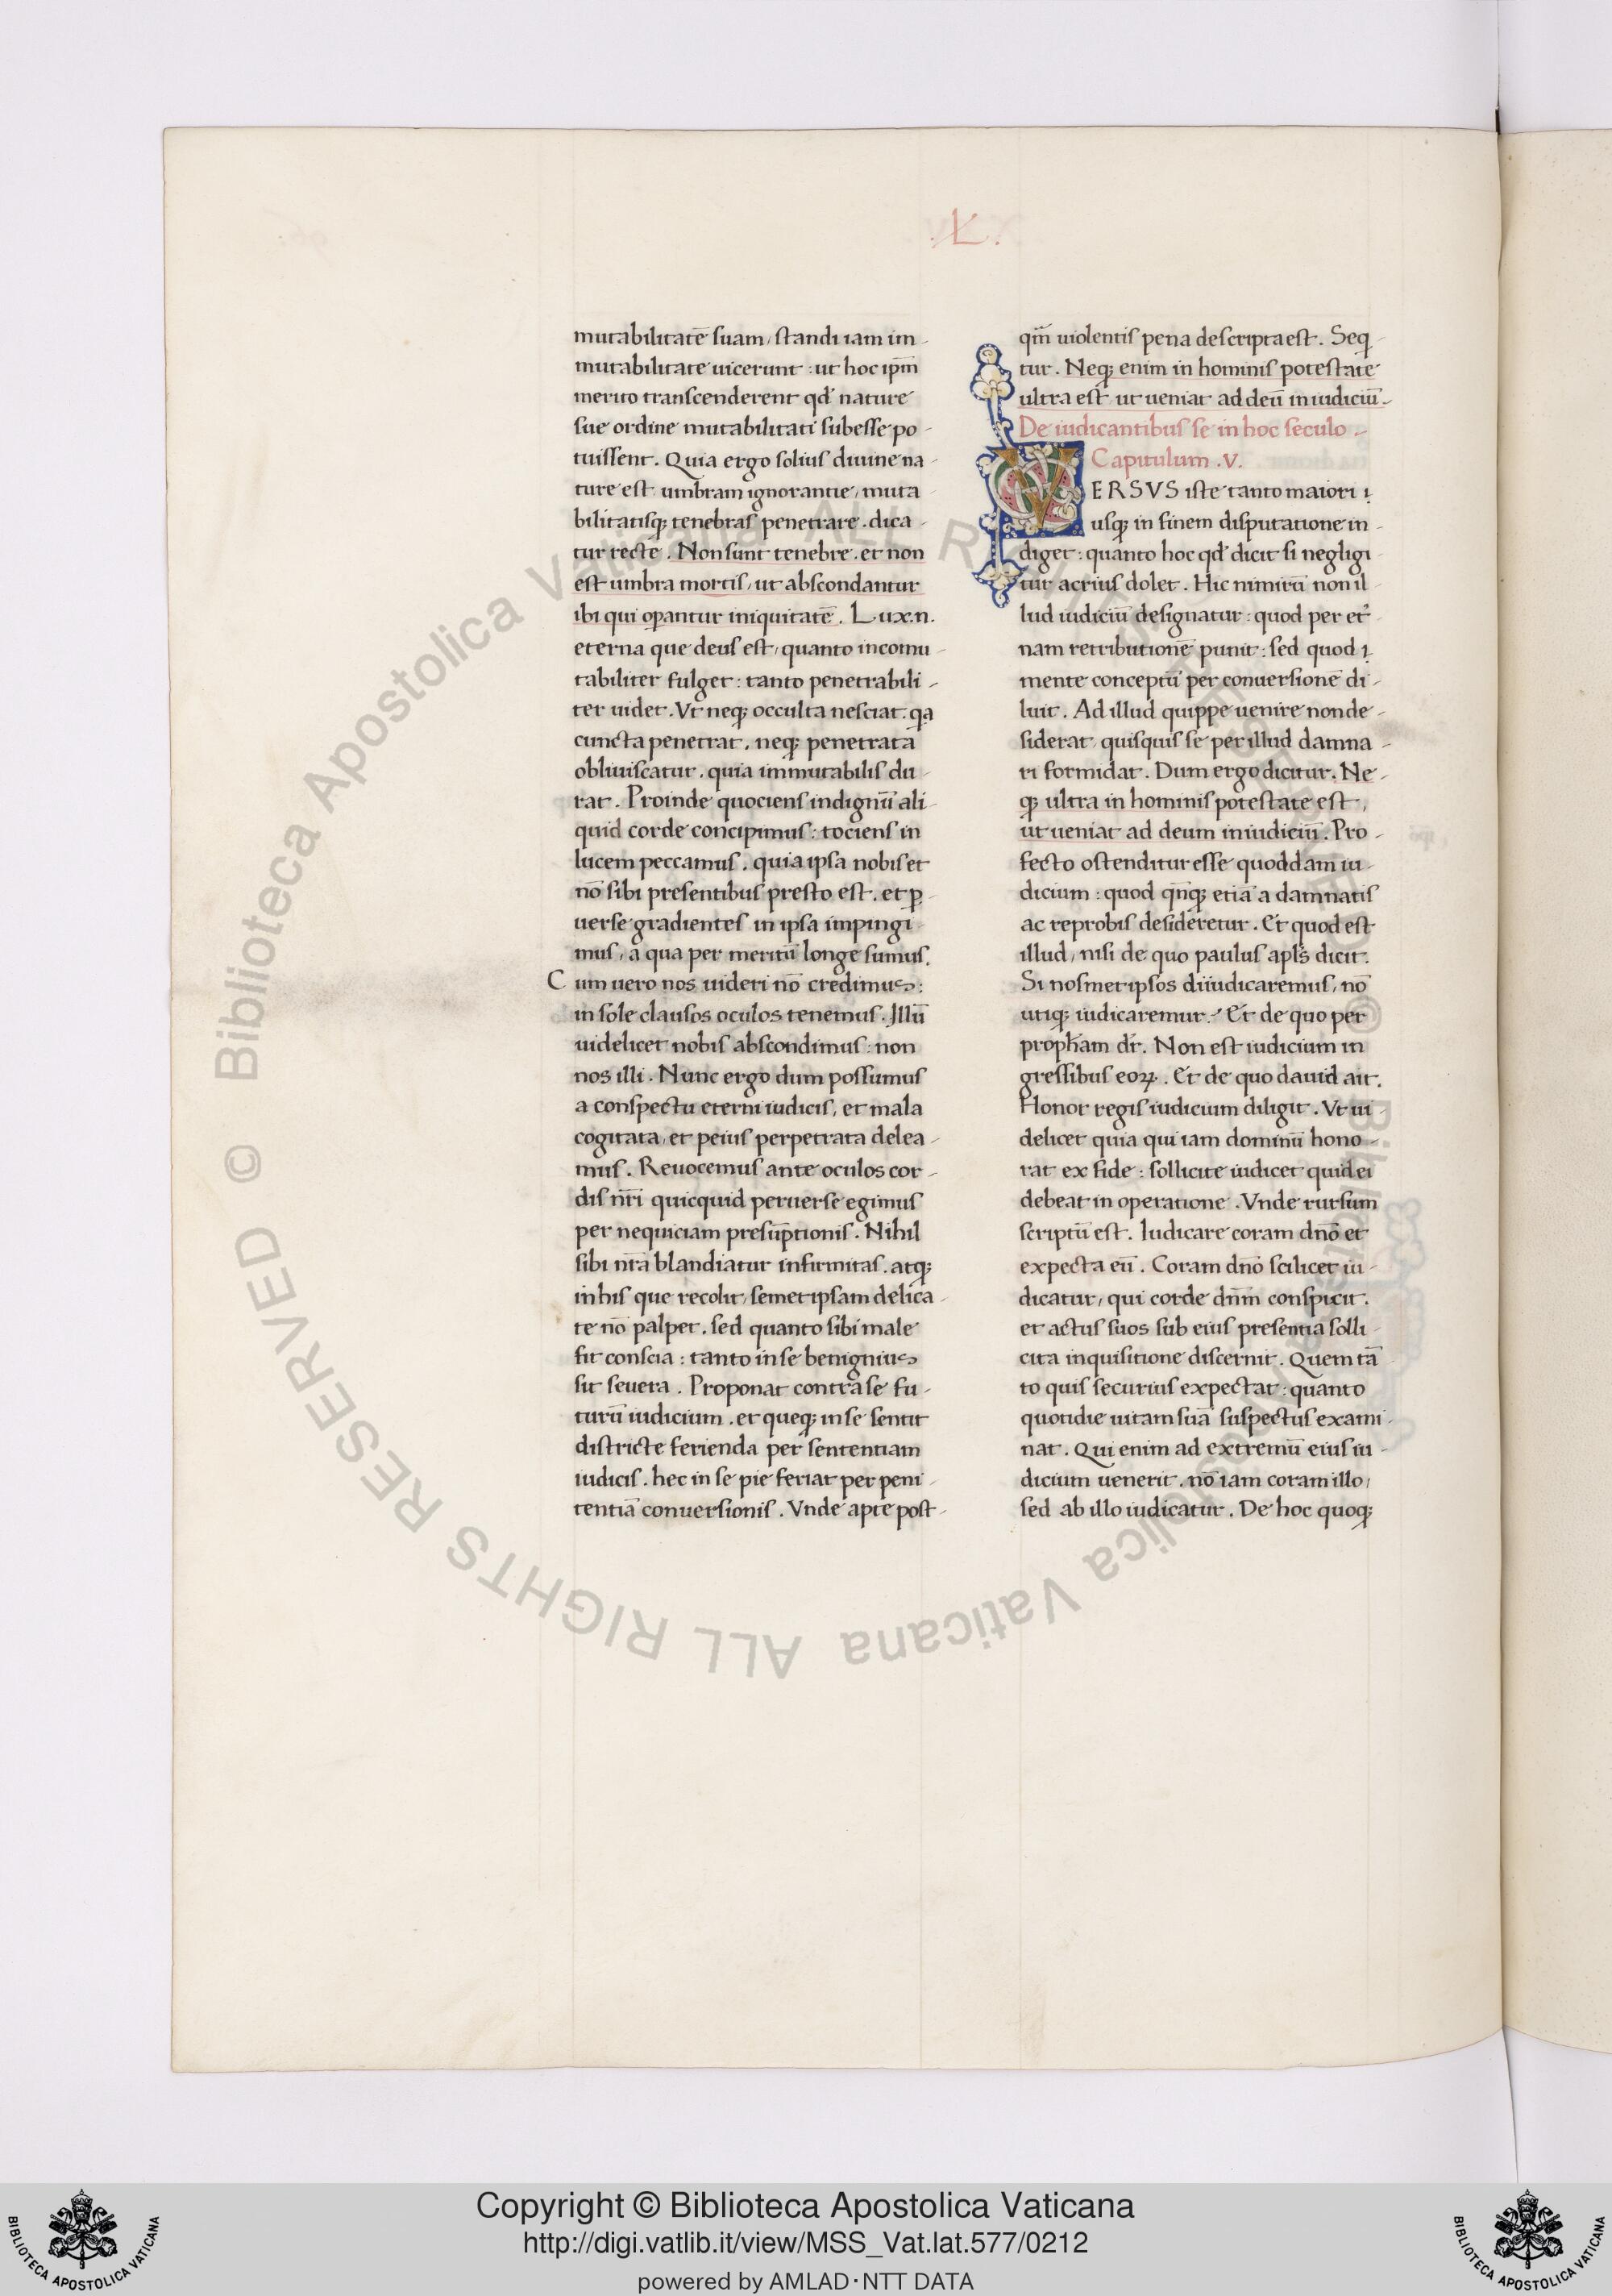 .L.
mutabilitatē suam, standi iam im-
mutabilitate uicerunt : ut hoc ipm̄
merito transcenderent qd' nature
sue ordine mutabilitati subesse po-
tuissent. Quia ergo solius diuine na-
ture est umbram ignorantie, muta-
bilitatisq; tenebras penetrare. dica-
tur recte. Non sunt tenebre. et non
est umbra mortis, ut abscondantur
ibi qui opantur iniquitatē. Lux.n.
eterna que deus est, quanto incomu-
tabiliter fulget : tanto penetrabili-
ter uidet. Vt neq; occulta nesciat. qa
cuncta penetrat. neq; penetrata
obliuiscatur. quia immutabilis du-
rat. Proinde quociens indignū ali-
quid corde concipimus : tociens in
lucem peccamus. quia ipsa nobis et
nō sibi presentibus presto est. et p
uerse gradientes in ipsa impingi-
mus, a qua per meritū longe sumus.
Cum uero nos uideri nō credimus :
in sole clausos oculos tenemus. Illū
uidelicet nobis abscondimus : non
nos illi. Nunc ergo dum possumus
a conspectu eterni iudicis, et mala
cogitata, et peius perpetrata delea-
mus. Reuocemus ante oculos cor-
dis nr̄i quicquid peruerse egimus
per nequiciam presūptionis. Nihil
sibi nr̄a blandiatur infirmitas. atq;
in his que recolit, semetipsam delica-
te nō palpet. sed quanto sibi male
fit conscia : tanto in se benignius
sit seuera. Proponat contra se fu-
turū iudicium. et queq; in se sentit
districte ferienda per sententiam
iudicis. hec in se pie feriat per peni-
tentiā conuersionis. Vnde apte post-
qm̄ uiolentis pena descripta est. Seq-
tur. Neq; enim in hominis potestate
ultra est ut ueniat ad deū in iudiciū.
De iudicantibus se in hoc seculo.
Capitulum .V.
VERSVS iste tanto maiori i
usq; in finem disputatione in-
diget : quanto hoc qd' dicit si negligi-
tur acrius dolet. Hic nimirū non il-
lud iudiciū designatur : quod per et'
nam retributionē punit : sed quod i
mente conceptū per conuersionē di-
luit. Ad illud quippe uenire non de-
siderat quisquis se per illud damna-
ri formidat. Dum ergo dicitur. Ne-
q; ultra in hominis potestate est,
ut ueniat ad deum in iudiciū. Pro-
fecto ostenditur esse quoddam iu-
dicium : quod qn̄q; etiā a damnatis
ac reprobis desideretur. Et quod est
illud, nisi de quo paulus apl's dicit.
Si nosmetipsos diiudicaremus, nō
utiq; iudicaremur. Et de quo per
proph̄am dr̄. Non est iudicium in
gressibus eoꝝ. Et de quo dauid ait.
Honor regis iudicium diligit. Vt ui-
delicet quia qui iam dominū hono-
rat ex fide : sollicite iudicet quid ei
debeat in operatione. Vnde rursum
scriptū est. Iudicare coram dnō et
expecta eū. Coram dnō scilicet iu-
dicatur, qui corde dnm̄ conspicit.
et actus suos sub eius presentia solli-
cita inquisitione discernit. Quem tā
to quis securius expectat : quanto
quotidie uitam suā suspectus exami-
nat. Qui enim ad extremū eius iu-
dicium uenerit. nō iam coram illo,
sed ab illo iudicatur. De hoc quoq;
© Biblioteca Apostolica Vaticana ALL RIGHTS RESERVED
© Biblioteca Apostolica Vaticana ALL RIGHTS RESERVED
Copyright © Biblioteca Apostolica Vaticana
http://digi.vatlib.it/view/MSS_Vat.lat.577/0212
powered by AMLAD·NTT DATA
BIBLIOTECA APOSTOLICA VATICANA
BIBLIOTECA APOSTOLICA VATICANA